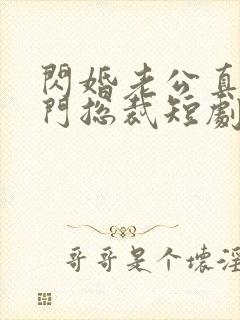 閃婚老公真
門总裁短劇
哥哥是个壞淫